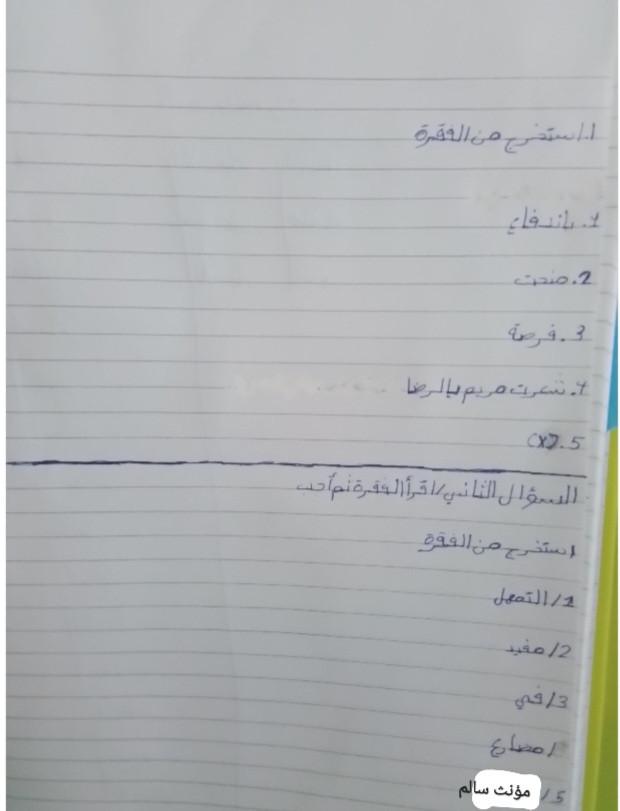 1. استخرج من الفقرة
1. باندفاع
2. منحت
3. فرصة
4. شعرت مريم بالرضا
5. (X)
السؤال الثاني/اقرأ الفقرة ثم أجب
استخرج من الفقرة
1/ التمهل
2/ مفيد
3/ في
/ مصارع
5/ مؤنث سالم